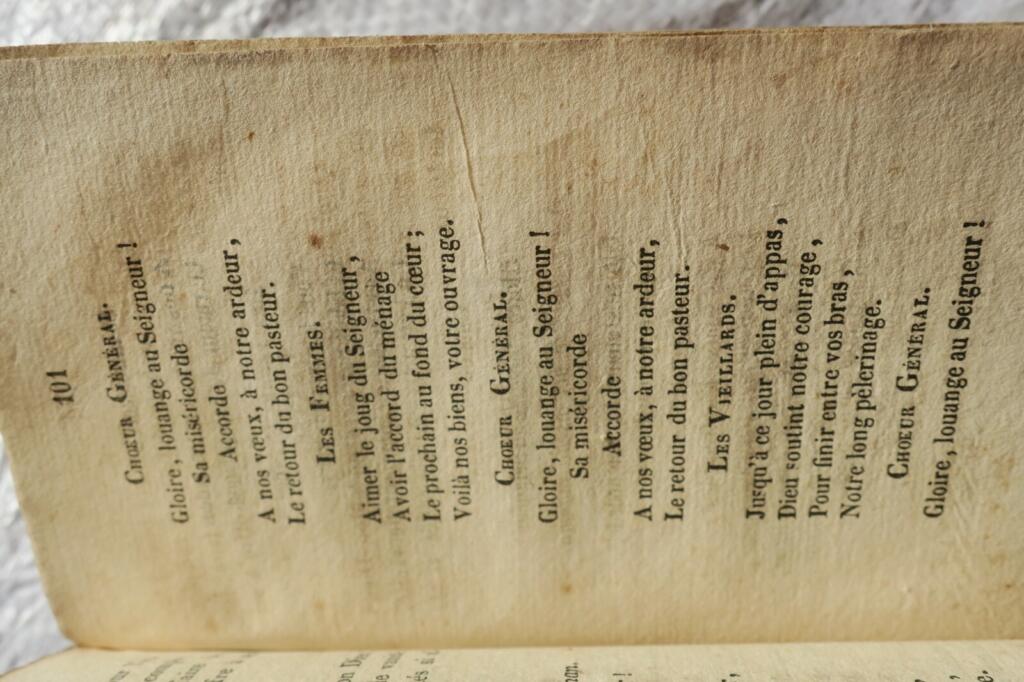 101
CHŒUR GÉNÉRAL.
Gloire, louange au Seigneur !
Sa miséricorde
Accorde
A nos vœux, à notre ardeur,
Le retour du bon pasteur.
LES FEMMES.
Aimer le joug du Seigneur,
Avoir l'accord du ménage
Le prochain au fond du cœur ;
Voilà nos biens, votre ouvrage.
CHŒUR GÉNÉRAL.
Gloire, louange au Seigneur !
Sa miséricorde
Accorde
A nos vœux, à notre ardeur,
Le retour du bon pasteur.
LES VIEILLARDS.
Jusqu'à ce jour plein d'appas,
Dieu soutint notre courage,
Pour finir entre vos bras,
Notre long pèlerinage.
CHOEUR GÉNÉRAL.
Gloire, louange au Seigneur !